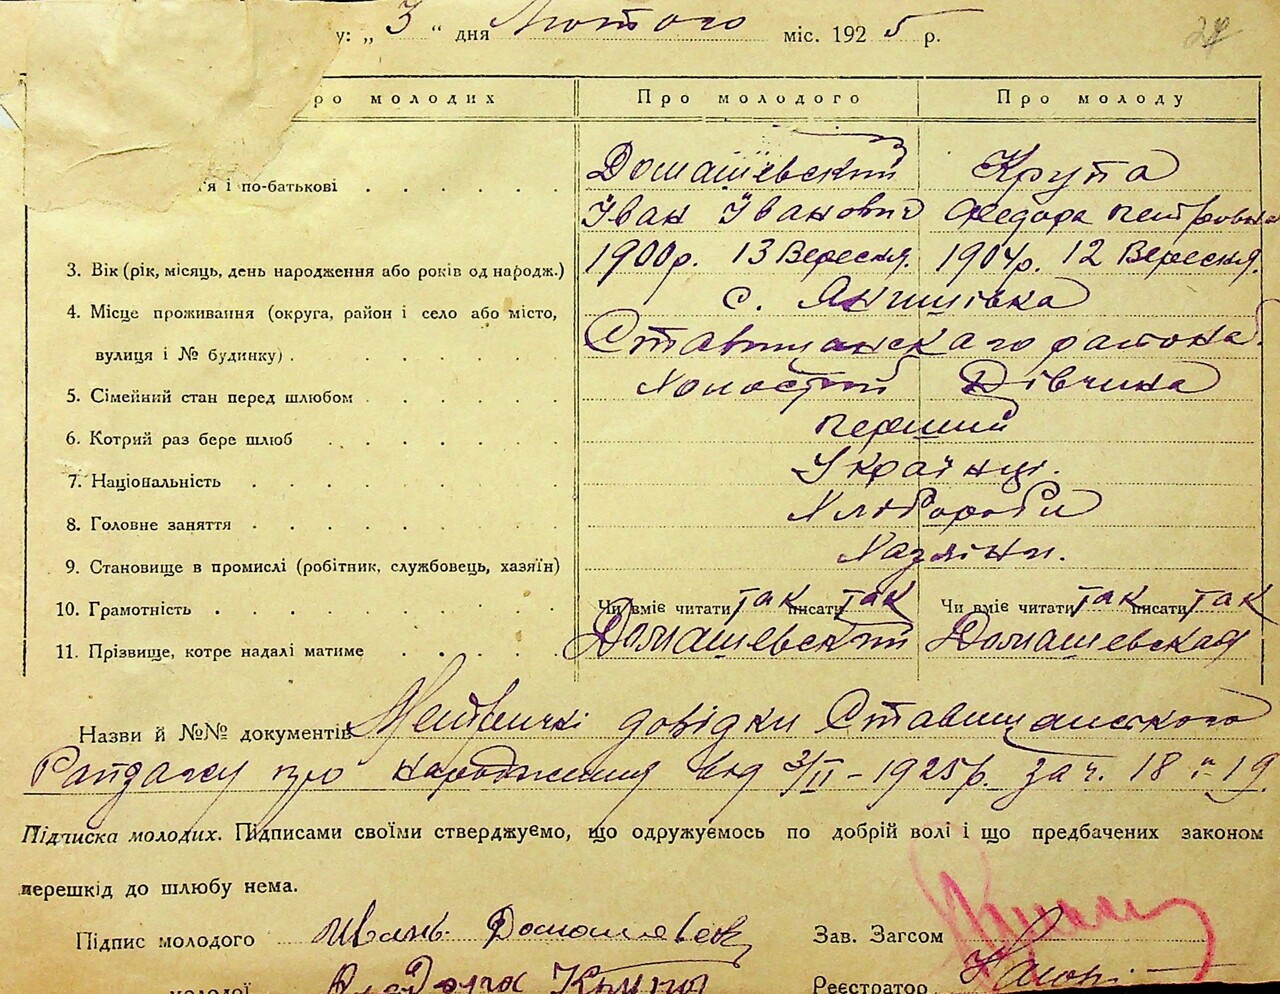 у: „ 3 “ дня Лютого міс. 1925 р.
24
ро молодих Про молодого Про молоду
Домашевский Крупа
'я і по-батькові
Іван Іванович Федора Петровна
3. Вік (рік, місяць, день народження або років од народж.) 1900р. 13 Вересня. 1904р. 12 Вересня.
4. Місце проживання (округа, район і село або місто, с. Янишівка
вулиця і № будинку) . Ставищанскаго района
5. Сімейний стан перед шлюбом Холостий Дівчина
6. Котрий раз бере шлюб перший
7. Національність Українці.
8. Головне заняття Хлібороби
9. Становище в промислі (робітник, службовець, хазяїн) Хазяїни.
10. Грамотність Чи вміє читати так писати так Чи вміє читати так писати так
11. Прізвище, котре надалі матиме Домашевский Домашевская
Назви й №№ документів Метричкі довідки Ставищанского
Райзагсу про народження від 3/II – 1925р. за ч. 18 и 19.
Підписка молодих. Підписами своїми стверджуємо, що одружуємось по добрій волі і що предбачених законом
перешкід до шлюбу нема.
Підпис молодого Иванъ Домашевск Зав. Загсом
молодої Крупа Реєстратор